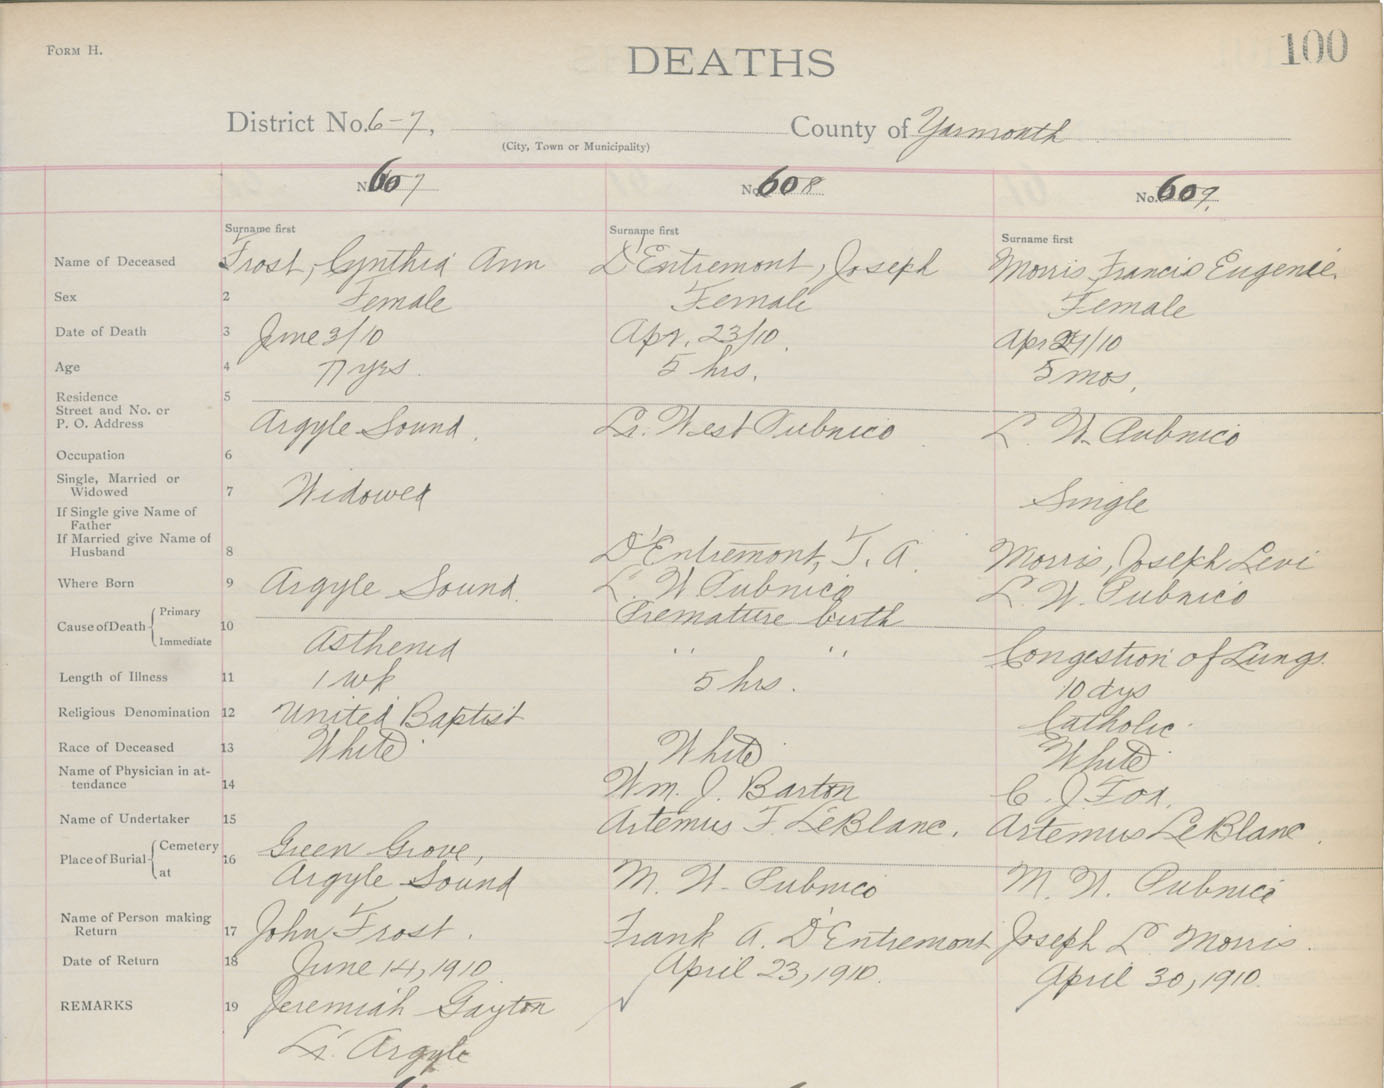 FORM H.
DEATHS
100
District No. 6-7,
County of Yarmouth
(City, Town or Municipality)
No. 607
No. 608
No. 609
Surname first
Surname first
Surname first
Name of Deceased Frost, Cynthia Ann D'Entremont, Joseph Morris, Francis Eugenie
Sex 2 Female Female Female
Date of Death 3 June 3/10 Apr. 23/10 Apr 27/10
Age 4 77 yrs. 5 hrs. 5 mos.
Residence 5
Street and No. or
P. O. Address Argyle Sound. Lr. West Pubnico L. W. Pubnico
Occupation 6
Single, Married or
Widowed 7 Widowed Single
If Single give Name of
Father
If Married give Name of
Husband 8 D'Entremont, T. A. Morris, Joseph Levi
Where Born 9 Argyle Sound. L. W Pubnico L. W. Pubnico
Cause of Death Primary 10 Premature birth
Immediate Asthenia " " Congestion of Lungs.
Length of Illness 11 1 wk 5 hrs. 10 dys
Religious Denomination 12 United Baptist Catholic.
Race of Deceased 13 White White White
Name of Physician in at-
tendance 14 Wm. J. Barton C. J. Fox.
Name of Undertaker 15 Artemus F. LeBlanc. Artemus LeBlanc.
Place of Burial Cemetery 16 Green Grove,
at Argyle Sound M. W. Pubnico M. W. Pubnico
Name of Person making
Return 17 John Frost. Frank A. D'Entremont Joseph L. Morris.
Date of Return 18 June 14, 1910 April 23, 1910. April 30, 1910.
REMARKS 19 Jeremiah Gayton
Lr. Argyle